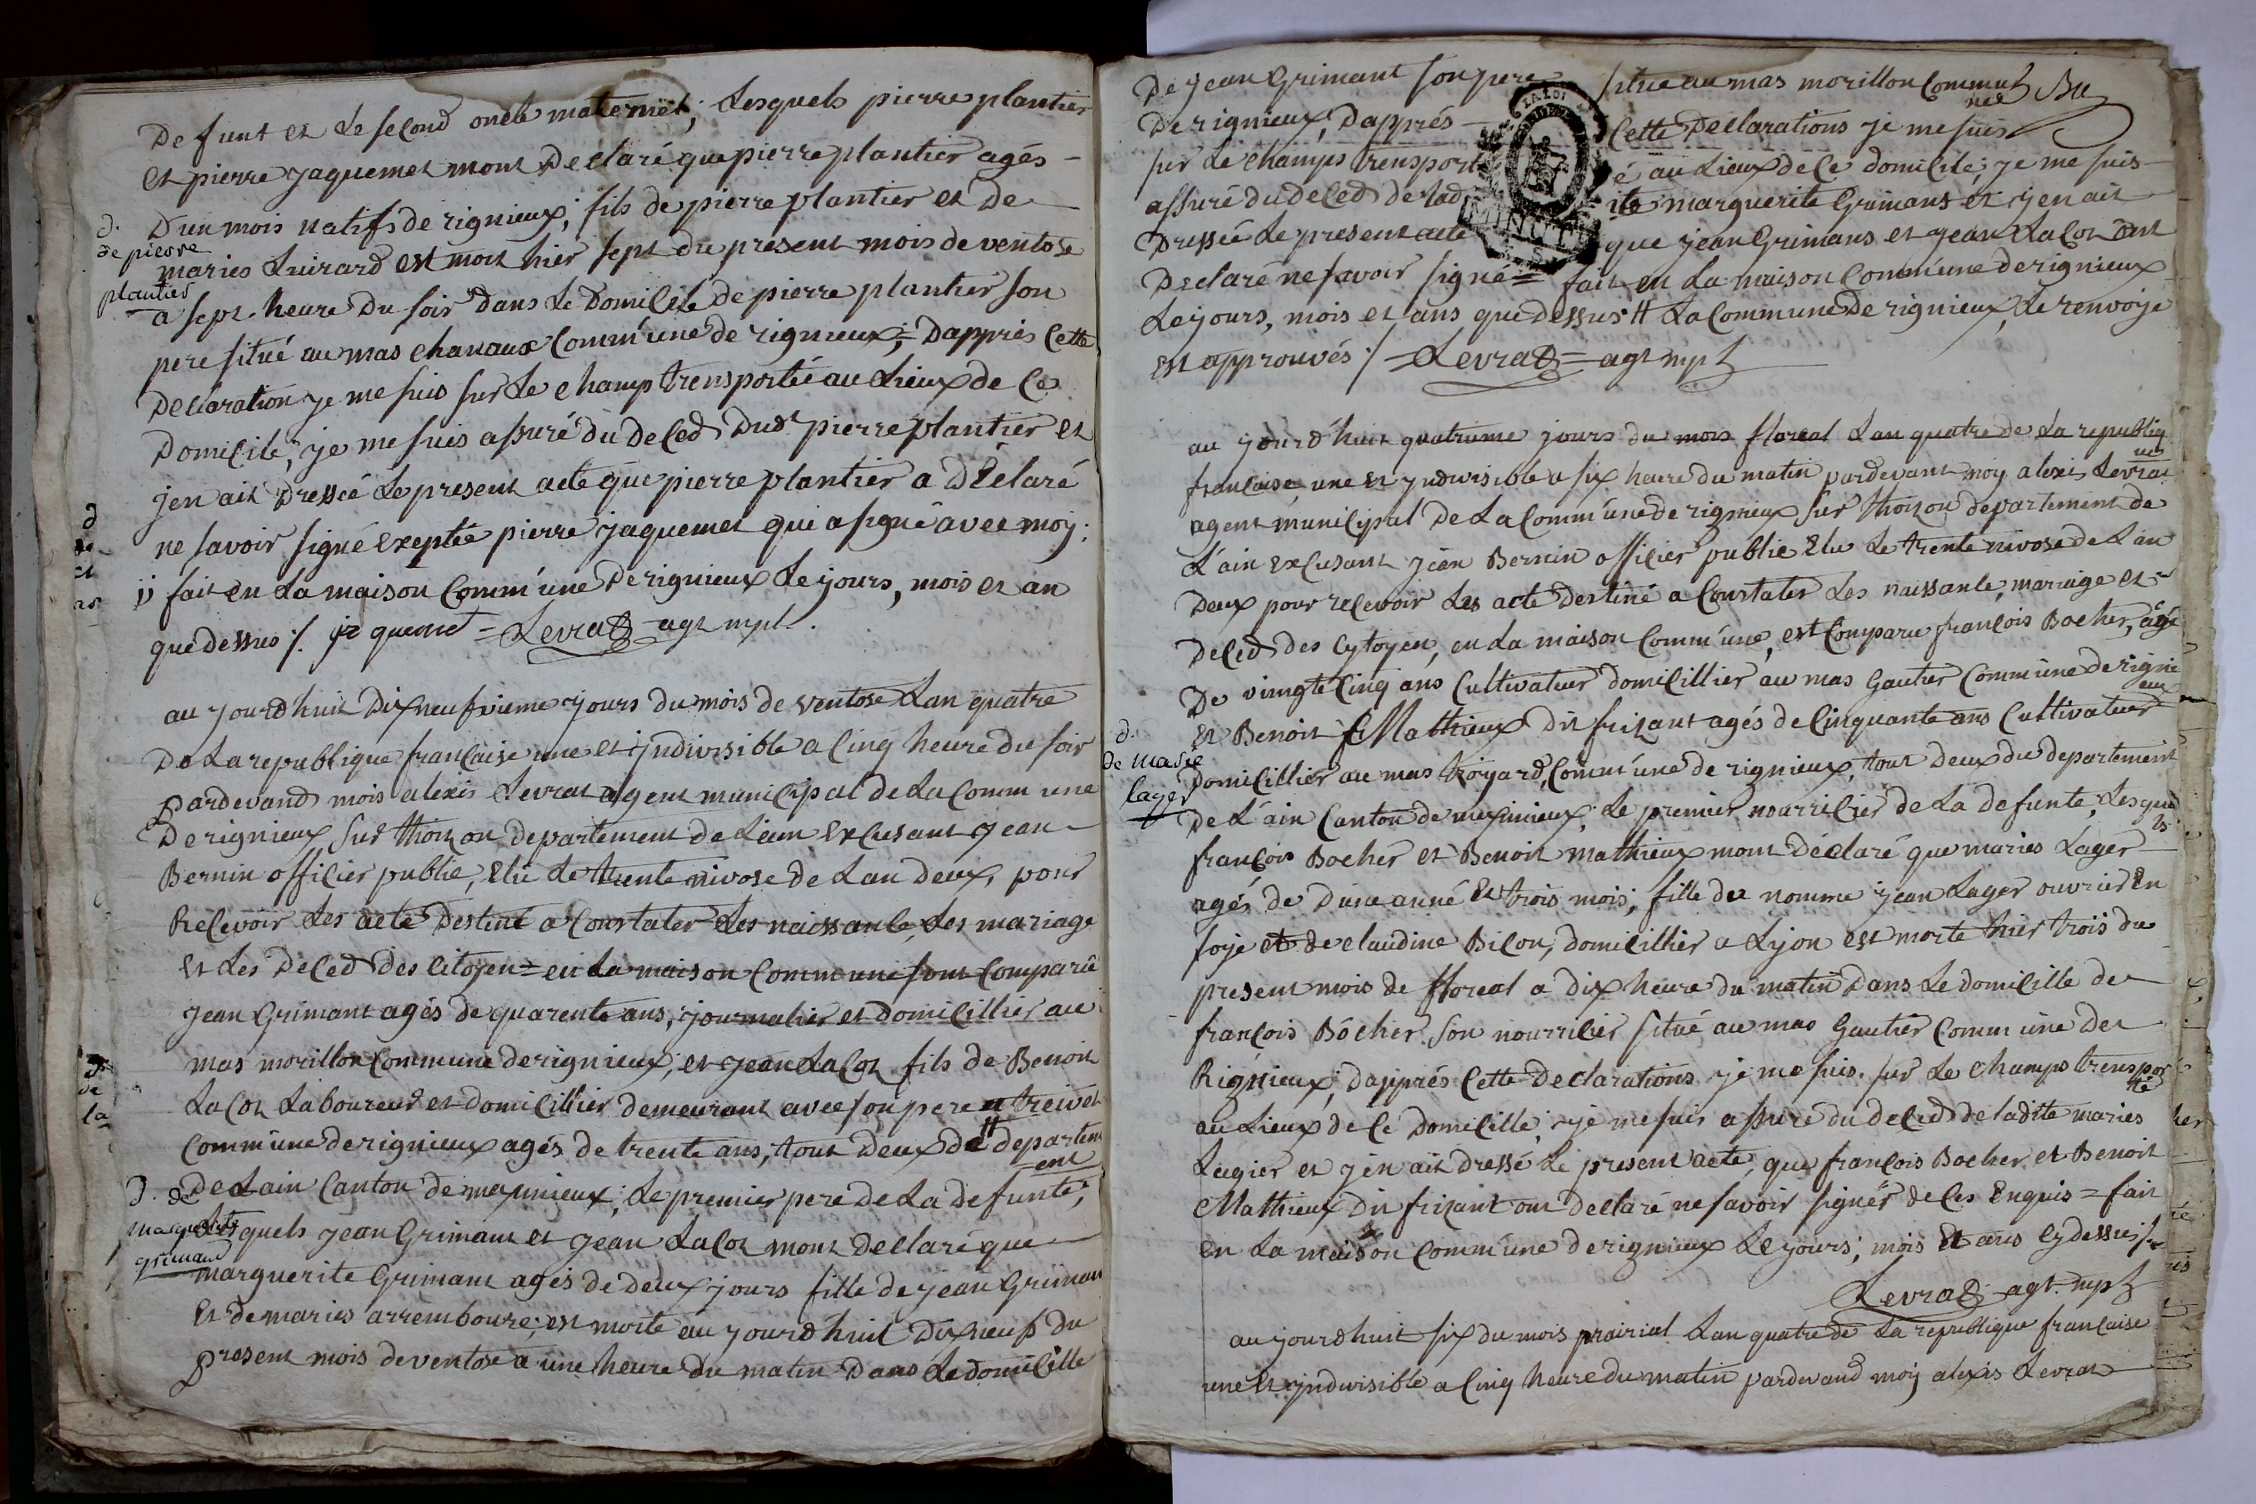 Defunt et Le second oncle maternel; Lesquels pierre plantier
Et pierre jaquemet mont Déclaré que pierre plantier agés
D'un mois natifs de rignieux; fils de pierre plantier et De
d.
de pierre
plantier
maries Luirard est mort hier sept du present mois de ventose
a sept heure Du soir Dans Le Domicile de pierre plantier son
pere situé au mas chanaux Comm'une de rignieux; D'apprés Cette
Déclaration je me suis sur Le champ trensportée au Lieux de Ce
Domicile; je me suis assuré du deced Dudt pierre plantier et
jen ait Dressée Le present acte que pierre plantier a Déclaré
ne savoir signé Exeptée pierre jaquemet qui a signé avec moy:
fait en La maison Comm'une De rignieux Le jours, mois et an
que dessus /. jaquemet = Levrat agt mpl.
au jourdhuit Dix neufvieme jours du mois de ventose Lan quatre
De La republique française une et jndivisible a Cinq heure du soir
Pardevand mois alexis Levrat agent municipal de La Comm une
De rignieux sur thoizon departement de L'ain Excusant jean
Bernin officier public, Elu Le trente nivose de Lan deux, pour
Recevoir Les acte Destiné a Constater Les naissance, Les mariage
Et Les Deced des Citoyen = en La maison Commune sont Comparu
jean Grimant agés de quarente ans, journalier et domicillier au
mas morillon Commune de rignieux, et jean Lacot fils de Benoit
Lacot Laboureur et domicillier demeurant avec son pere a treivet
Comm'une de rignieux agés de trente ans, tout Deux de # departem
ent
De Lain Canton de meximieux; Le premier pere de La defunte;
D. de
marguerite
grimand
Lesquels jean Grimant et jean Lacot mont declaré que
marguerite Grimant agés de deux jours fille de jean Griman
Et de maries arremboure; est morte au jourdhuit Dix neuf du
Present mois de ventose a une heure du matin Dans Le domicille
De jean Grimant son pere situe au mas morillon Commu
nee
De rignieux, D'apprés Cette Declarations je me suis
sur Le champs trensporté au Lieux de Ce domicile; je me suis
assuré du deced de ladite marguerite Grimans et j'en ait
Dressée Le present acte que jean Grimans et jean Lacot ont
Declaré ne savoir signé = fait en La maison Comm'une de rignieux
Le jours, mois et ans que dessus # La Commune De rignieux, Le renvoje
est approuvés /= Levrat = agt mpl
LA LOI
MINUTE
au jourd'huit quatrieme jours du mois floreal Lan quatre de La republiq
ue
française une et jndivisible a six heure du matin pardevant moy alexis Levrat
agent municipal De La Comm'une de rignieux sur thoizon departement de
L'ain Excusant jean Bernin officier public Elu Le trente nivose de L'an
Deux pour recevoir Les acte destiné a Constater Les naissance, mariage et
Deced des Cytoyen, en La maison Comm'une, est Comparu françois Bocher, agé
De vingte Cinq ans Cultivateur domicillier au mas Gautier Comm'une de rigni
eux
et Benoit Mathieux Dit frizant agés de Cinquante ans Cultivateur
d.
de marie
lager
Domicillier au mas troyard, Comm'une de rignieux, tout Deux du departement
De L'ain Canton de meximieux; Le premier nourricier de La defunte, Lesque
ls
françois Bocher et Benoit mathieux mont Déclaré que maries Lager
agés de D'une anné Et trois mois; fille de nomme jean Lager ouvrier En
soje et de claudine Bicon, domicillier a Lyon est morte hier trois du
present mois de floreal a dix heure du matin Dans Le domicille de
françois Bocher son nourricier situé au mas Gautier Comm une de
Rignieux; d'apprés Cette Declarations je me suis sur Le champs transpor
té
au Lieux de Ce Domicille; je me suis assuré du deced de ladite maries
Legier et j'en ait dressé Le present acte, que françois Bocher et Benoit
Mathieux Dit frizant ont declaré ne savoir signér de Ces Enquis = fait
En La maison Comm'une de rignieux Le jours; mois Et ans cy dessus /.
Levrat agt mpl
au jourdhuit six du mois prairial Lan quatre de La republique française
une Et jndivisible a Cinq heure du matin pardevand moy alexis Levrat